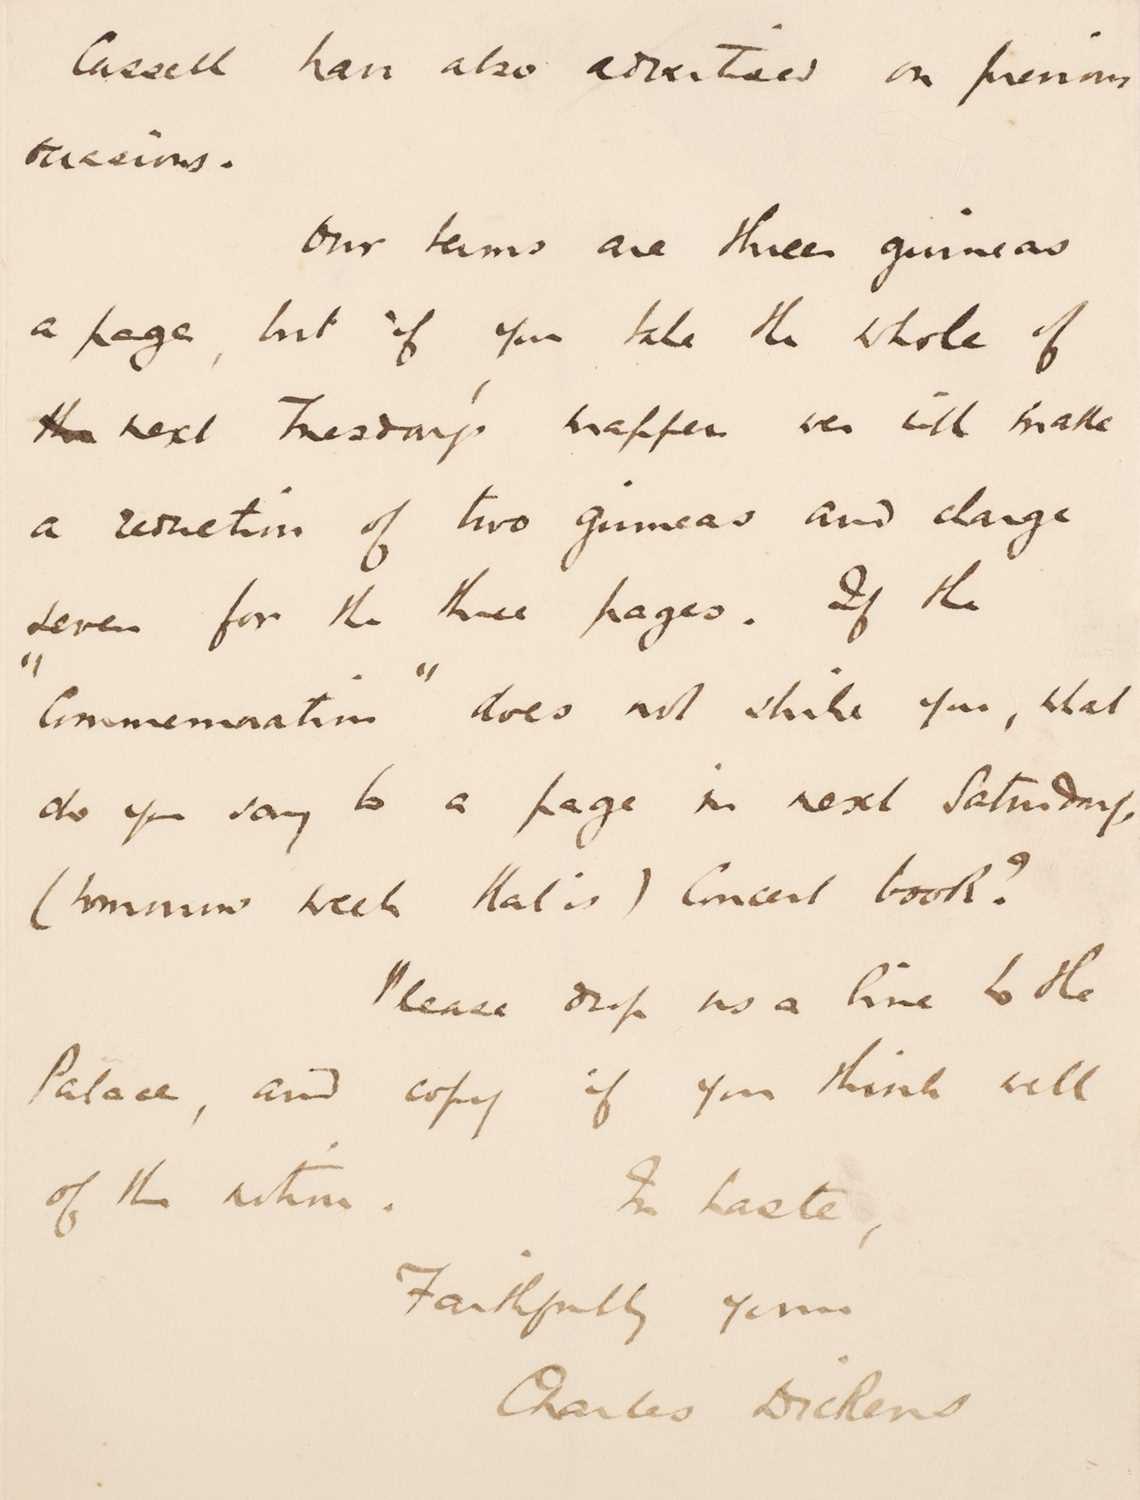 Cassell have also advertised on previous
occasions.
Our terms are three guineas
a page, but if you take the whole of
the next Tuesday's wrapper we will make
a reduction of two guineas and charge
seven for the three pages. If the
"Commemoration" does not strike you, what
do you say to a page in next Saturday's
(tomorrow week that is) Concert book?
Please drop us a line to the
Palace, and copy if you think well
of the notion. In haste,
Faithfully yours
Charles Dickens